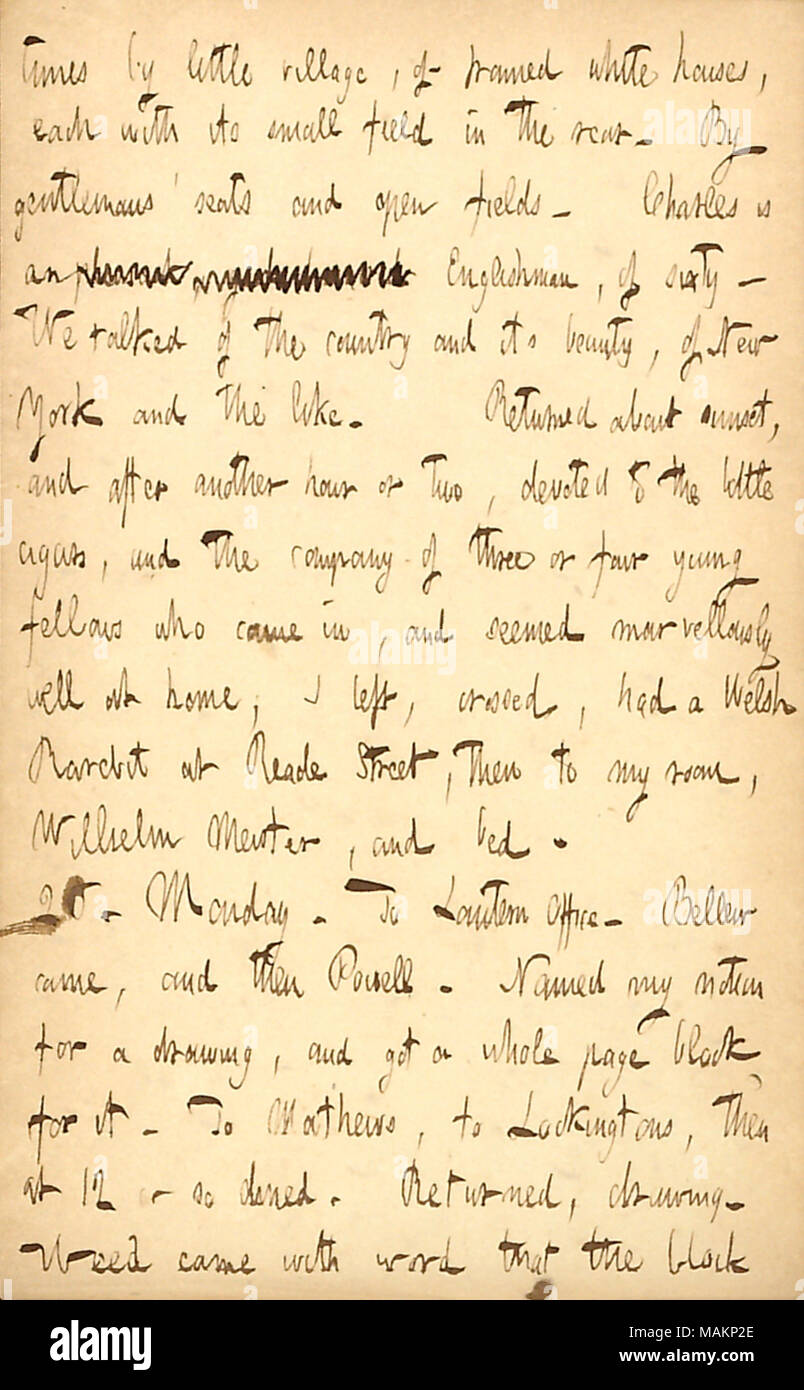 times by little village, of framed white houses,
each with its small field in the rear. By
gentlemans' seats and open fields. Charles is
an Englishman, of sixty —
We talked of the country and its beauty, of New
York and the like. Returned about sunset,
and after another hour or two, devoted to the little
cigars, and the company of three or four young
fellows who came in, and seemed marvellously
well at home; I left, crossed, had a Welsh
Rarebit at Reade Street, then to my room,
Wilhelm Meister, and bed.
Monday. To Lantern Office. Bellew
came, and then Powell. Named my notion
for a drawing, and got a whole page block
for it. To Mathews, to Lockingtons, then
at 12 or so dined. Returned, drawing.
Weed came with word that the block
alamy
Image ID: MAKP2E
www.alamy.com